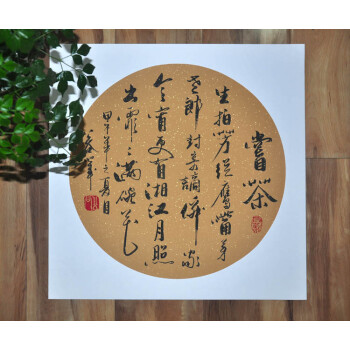 嘗茶
生拍芳丛鹰嘴芽
老郎封寄謫仙家
今宵更有湘江月照
出霏〻满碗花
甲午年之夏月